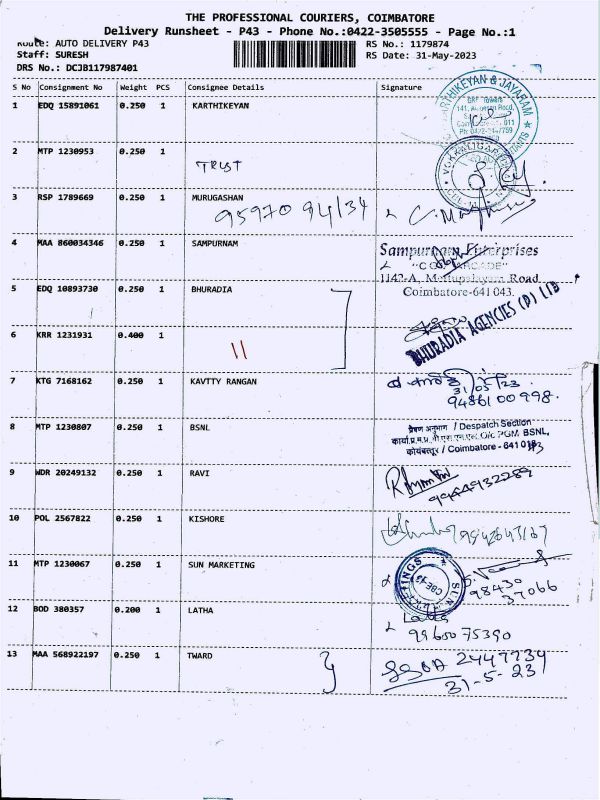 THE PROFESSIONAL COURIERS, COIMBATORE
Delivery Runsheet - P43 - Phone No.:0422-3505555 - Page No.:1
Route: AUTO DELIVERY P43 RS No.: 1179874
Staff: SURESH RS Date: 31-May-2023
DRS No.: DCJB117987401
S No Consignment No Weight PCS Consignee Details Signature
1 EDQ 15891061 0.250 1 KARTHIKEYAN
KARTHIKEYAN & JAYARAM
2 MTP 1230953 0.250 1
TRUST
3 RSP 1789669 0.250 1 MURUGASHAN
95970 94134
4 MAA 860034346 0.250 1 SAMPURNAM
Sampurnam Enterprises
1142-A, Mettupalayam Road
Coimbatore-641 043.
5 EDQ 10893730 0.250 1 BHURADIA
BHURADIA AGENCIES (P) LTD
6 KRR 1231931 0.400 1
11
7 KTG 7168162 0.250 1 KAVTTY RANGAN
31/05/23
94861 00998
8 MTP 1230807 0.250 1 BSNL
प्रेषण अनुभाग / Despatch Section
O/c PGM, BSNL,
कोयंबत्तूर / Coimbatore - 641 0
9 WDR 20249132 0.250 1 RAVI
9944932289
10 POL 2567822 0.250 1 KISHORE
11 MTP 1230067 0.250 1 SUN MARKETING
CBE-43
98430
37066
12 BOD 380357 0.200 1 LATHA
Latha
99650 75390
13 MAA 568922197 0.250 1 TWARD
2447734
31-5-23